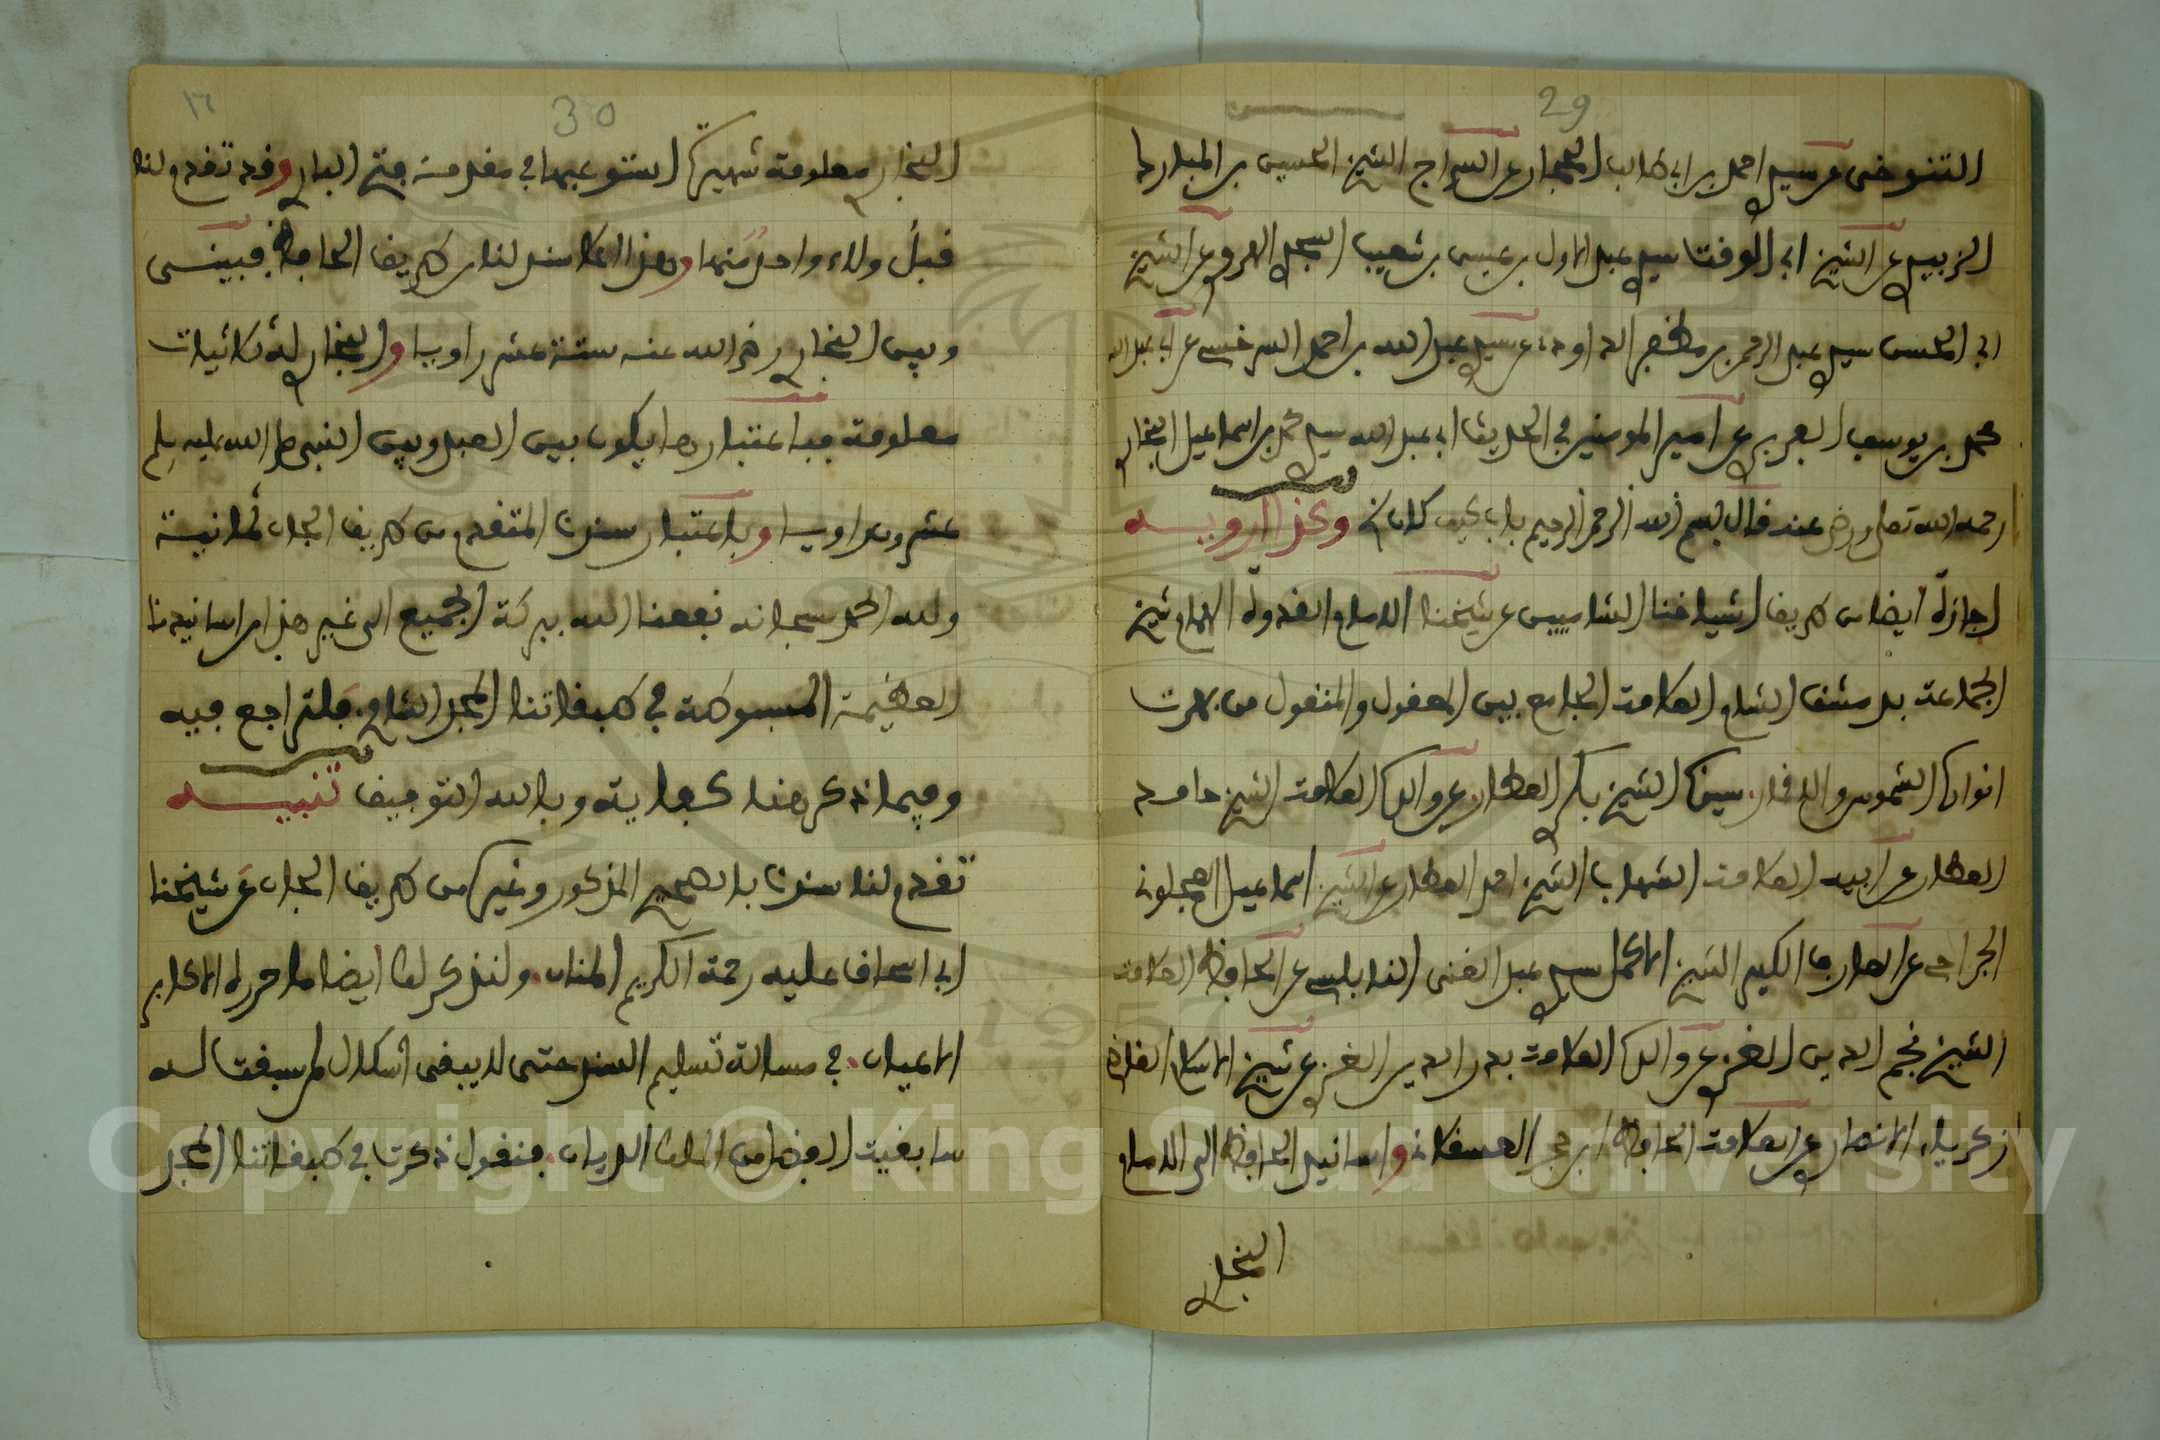 29
التنوخي عن سيد احمد بن ابي طالب الحجار عن السراج الشيخ الحسين بن المبارك
الزبيدي عن الشيخ ابي الوقت سيد عبد الاول بن عيسى بن شعيب السجزي الهروي عن الشيخ
ابي الحسن سيد عبد الرحمن بن مظفر الداودي عن سيد عبد الله بن احمد السرخسي عن ابي عبد الله
محمد بن يوسف الفربري عن امير المومنين في الحديث ابي عبد الله سيد محمد بن اسماعيل البخاري
رحمه الله تعلى ورضي عنه قال بسم الله الرحمن الرحيم باب كيف كان الخ وكذا ارويه
اجازة ايضا من طريق اشياخنا الشاميين عن شيخنا الامام القدوة الهمام شيخ
الجماعة بدمشق الشام العلامة الجامع بين المعقول والمنقول من بهرت
انواره الشموس والاقمار سيدي الشيخ بكر العطار عن والده العلامة الشيخ حامد
العطار عن ابيه العلامة الشهاب الشيخ احمد العطار عن الشيخ اسماعيل العجلوني
الجراحي عن العارف الكبير الشيخ الاكمل سيد عبد الغني النابلسي عن الحافظ العلامة
الشيخ نجم الدين الغزي عن والده العلامة بدر الدين الغزي عن شيخ الاسلام القاضي
زكرياء الانصاري عن العلامة الحافظ ابن حجر العسقلاني واسانيد الحافظ الى الامام
البخاري
30
البخاري معلومة شهيرة استوعبها في مقدمة فتح الباري وقد تقدم لنا
قبل ولاء واحد منها وهذا اعلا سند لنا من طريق الحافظ فبيني
وبين البخاري رضي الله عنه ستة عشر راويا والبخاري له ثلاثيات
معلومة فباعتبارها يكون بين العبد وبين النبي صلى الله عليه وسلم
عشرون راويا وباعتبار سندنا المتقدم من طريق الجان ثمانية
ولله الحمد سبحانه نفعنا الله ببركة الجميع الى غير هذا من اسانيدنا
العظيمة المبسوطة في طبقاتنا الكبرى فلتراجع فيه
وفيما ذكر هنا كفاية وبالله التوفيق تنبيه
تقدم لنا سندنا بالصحيح المذكور وغيره من طريق الجان عن شيخنا
ابي اسحاق عليه رحمة الكريم المنان ولنذكر لك ايضا ما حرره الاكابر
الاعيان في مسالة تسليم السند حتى لا يبقى اشكال لمن سبقت له
سابقية الرضا من الملك الديان فنقول ذكرت في طبقاتنا الكبرى